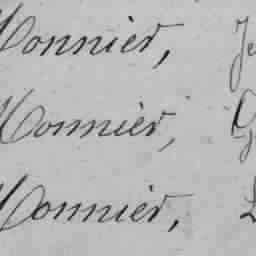 Monnier, Je
Monnier, G
Monnier, L